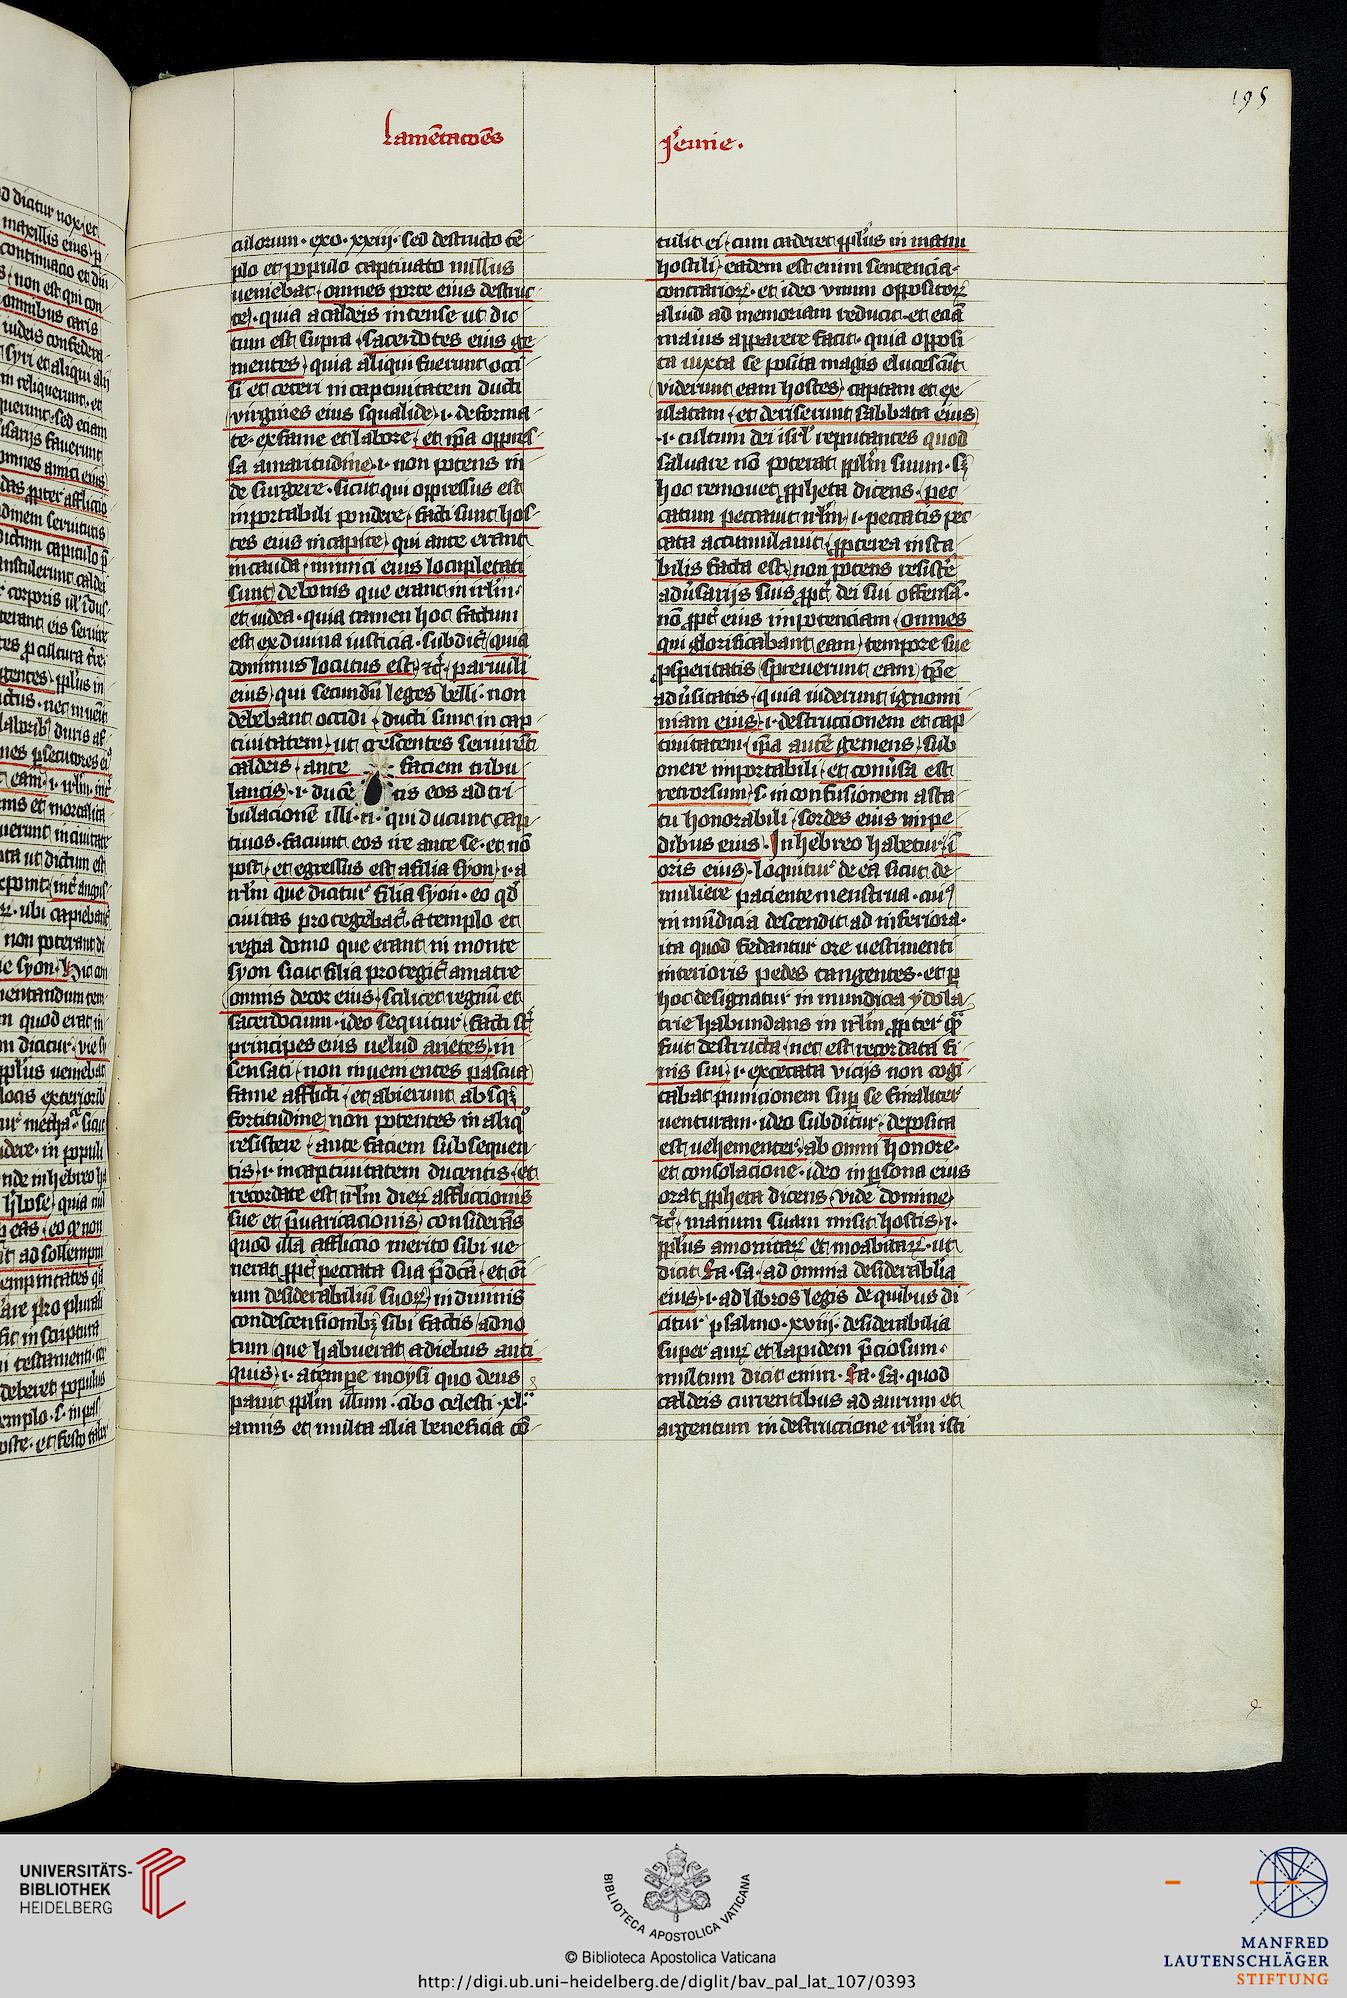 195
Lamentaciones
Jeremie.
culorum · exo · xxiii · sed destructo te
plo et populo captivato nullus
veniebat · omnes porte eius destruc
te · quia a caldeis incense ut dic
tum est supra · sacerdotes eius ge
mentes · quia aliqui fuerunt occi
si et ceteri in captivitatem ducti
virgines eius squalide · i · deforma
te · ex fame et labore · et ipa oppres
sa amaritudine · i · non potens in
de surgere · sicut qui oppressus est
inportabili pondere · facti sunt hos
tes eius in capite · qui ante erant
in cauda · inimici eius locupletati
sunt de bonis que erant in irlm ·
et iudea · quia tamen hoc factum
est ex divina iusticia · subdit · quia
dominus locutus est · ꝛc · parvuli
eius qui secundu leges belli · non
debebant occidi · ducti sunt in cap
tivitatem · ut crescentes servirent
caldeis · ante faciem tribu
lantis · i · ducetis eos ad tri
bulacione illi · n · qui ducunt cap
tivos · faciunt eos ire ante se · et no
post · et egressus est a filia syon · i · a
irlm que dicitur filia syon · eo qd
civitas protegebat · a templo et
regia domo que erant in monte
syon sicut filia protegit a matre
omnis decor eius · scilicet regnu et
sacerdocium · ideo sequitur · facti st
principes eius velud arietes · in
sensati · non invenientes pascua
fame afflicti · et abierunt absqꝫ
fortitudine non potentes in aliqo
resistere · ante faciem subsequen
tis · i · in captivitatem ducentis · et
recordate est irlm dierꝝ afflictionis
sue et pvaricacionis considerans
quod illa afflictio merito sibi ve
nerat ppt peccata sua pdca · et oi
um desiderabiliu suorꝝ in divinis
condescensionibꝫ sibi factis · adno
tum que habuerat a diebus anti
quis · i · a tempe moysi quo deus
pavit pplm illum · cibo celesti · xl ·
annis et multa alia beneficia co
tulit ei · cum caderet pplus in manu
hostili · eadem est enim sentencia ·
contrariorꝝ · et ideo unum oppositorꝝ
aliud ad memoriam reducit · et ecia
maius apparere facit · quia opposi
ta iuxta se posita magis elucescut
viderunt eam hostes · captam et ex
ulatam · et deriserunt sabbata eius
· i · cultum dei isrl reputantes quod
salvare no poterat pplm suum · sꝫ
hoc removet ppheta dicens · pec
catum peccavit irlm · i · peccatis pec
cata accumulavit · ppterea insta
bilis facta est · non potens resiste
adusarijs suis ppt dei sui offensa ·
no ppt eius impotenciam · omnes
qui glorificabant eam · tempore sue
psperitatis spreverunt eam tpe
adusitatis · quia viderunt ignomi
niam eius · i · destructionem et cap
tivitatem · ipa aute gemens · sub
onere importabili · et conusa est
retrorsum · s · in confusionem a sta
tu honorabili · sordes eius in pe
dibus eius · In hebreo habetur · i
oris eius · loquitur de ea sicut de
muliere paciente menstrua · cui
in mundicia descendit ad inferiora ·
ita quod fedantur ore vestimenti
interioris pedes tangentes · et p
hoc designatur in mundicia ydola
trie habundans in irlm ppter qua
fuit destructa · nec est recordata fi
nis sui · i · excecata vicijs non cogi
tabat punicionem sup se finaliter
venturam · ideo subditur · deposita
est vehementer · ab omni honore ·
et consolacione · ideo in psona eius
orat ppheta dicens · vide domine
ꝛc · manum suam misit hostis · i ·
pplus amonitarꝝ et moabitarꝝ · ut
dicit Ra · Sa · ad omnia desiderabilia
eius · i · ad libros legis de quibus di
citur psalmo · xviii · desiderabilia
super aurꝝ et lapidem pciosum ·
multum dicit enim · Ra · Sa · quod
caldeis currentibus ad aurum et
argentum in destructione irlm isti
UNIVERSITÄTS-
BIBLIOTHEK
HEIDELBERG
BIBLIOTECA APOSTOLICA VATICANA
© Biblioteca Apostolica Vaticana
http://digi.ub.uni-heidelberg.de/diglit/bav_pal_lat_107/0393
MANFRED
LAUTENSCHLÄGER
STIFTUNG